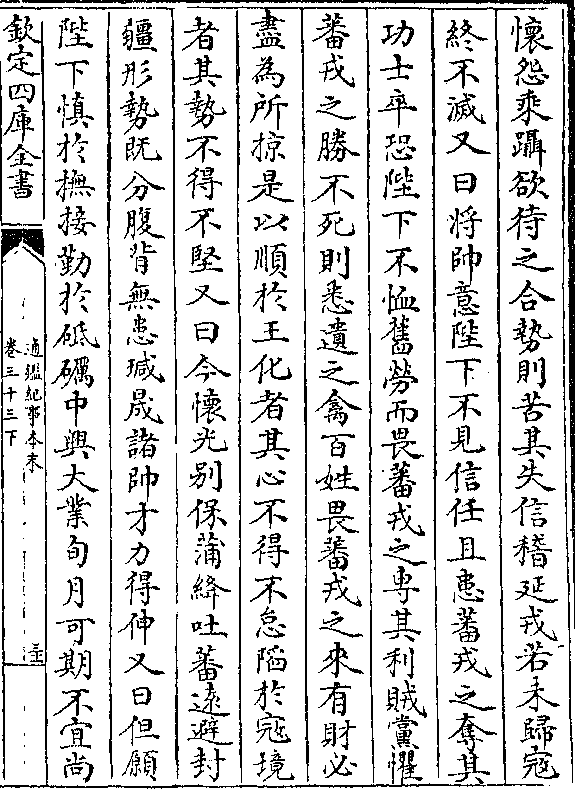 懷怨乘躡欲待之合勢則苦其失信稽延戎若未歸寇
終不滅又曰將帥意陛下不見信任且患蕃戎之奪其
功士卒恐陛下不恤舊勞而畏蕃戎之專其利賊黨懼
蕃戎之勝不死則悉遺之禽百姓畏蕃戎之來有財必
盡為所掠是以順於王化者其心不得不怠陷於寇境
者其勢不得不堅又曰今懷光别保蒲絳吐蕃遠避封
疆形勢既分腹背無患瑊晟諸帥才力得伸又曰但願
陛下慎於撫接勤於砥礪中興大業旬月可期不宜尚
欽定四庫全書
通鑑紀事本末
卷三十三下